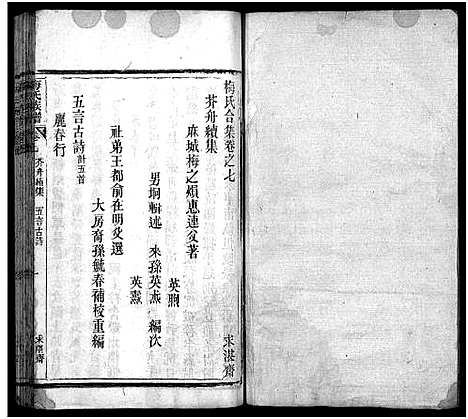 梅氏合集卷之七
求湛齋
芥舟續集
麻城梅之熉惠連父著
英煦
男垌輯述 來孫英燕 編次
英燾
社弟王都俞在明父選
大房裔孫毓春補校重編
五言古詩計五首
麗春行
梅氏族譜 卷七 芥舟續集 五言古詩 一 求湛齋